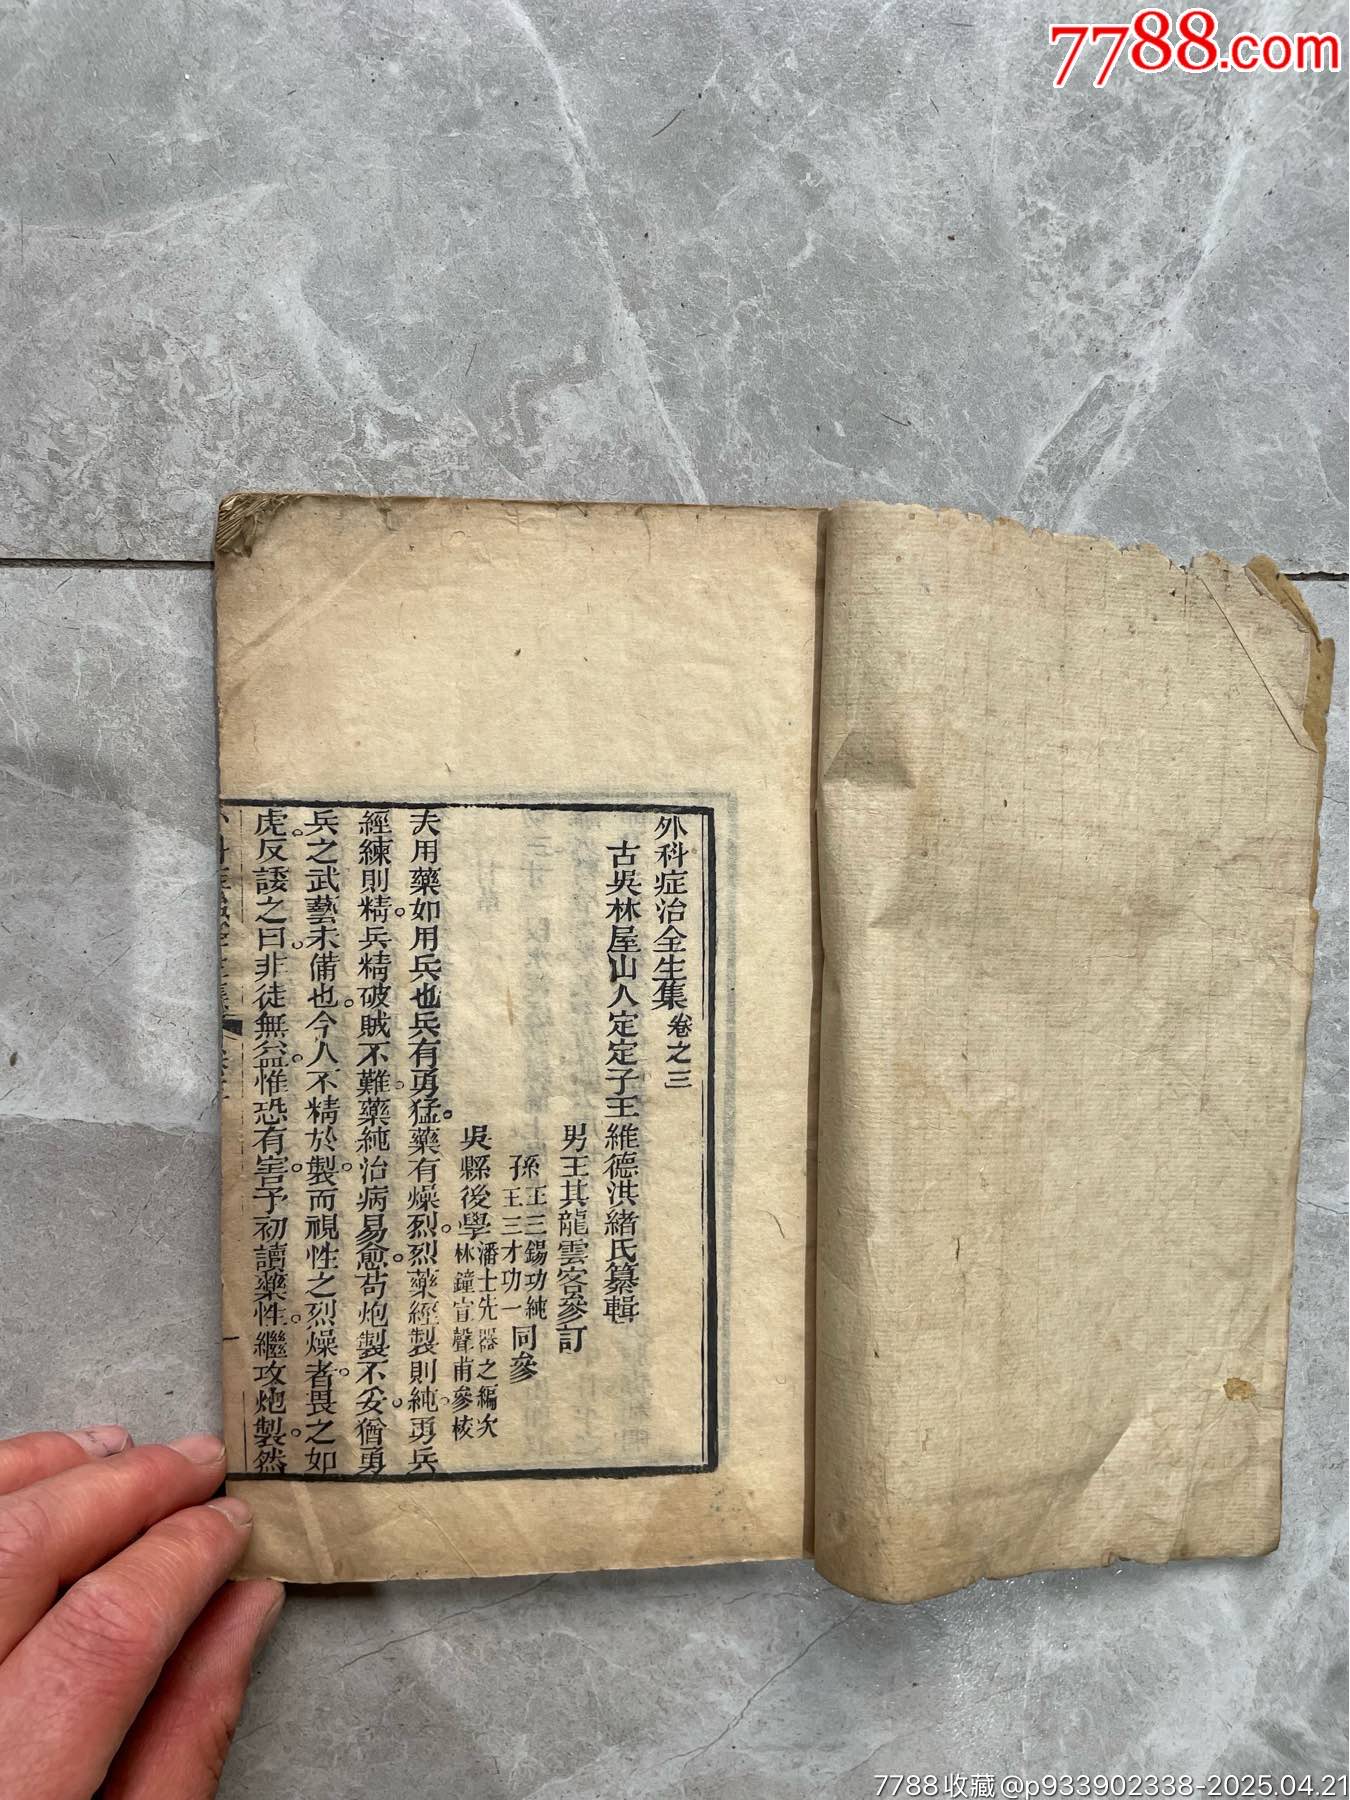 7788.com
外科症治全生集卷之三
古吳林屋山人定定子王維德洪緒氏纂輯
男王其龍雲客參訂
孫王三錫功純
孫王三才功一同參
吳縣後學潘士先器之編次
林鐘宣聲甫參核
夫用藥如用兵也兵有勇猛。藥有燥烈。烈藥經製則純。勇兵
經練則精。兵精破賊不難藥純治病易愈。苟炮製不妥。猶勇
兵之武藝未備也。今人不精於製。而視性之烈燥者。畏之如
虎。反諉之曰。非徒無益。惟恐有害。予初讀藥性。繼攻炮製。然
7788收藏@p933902338-2025.04.21